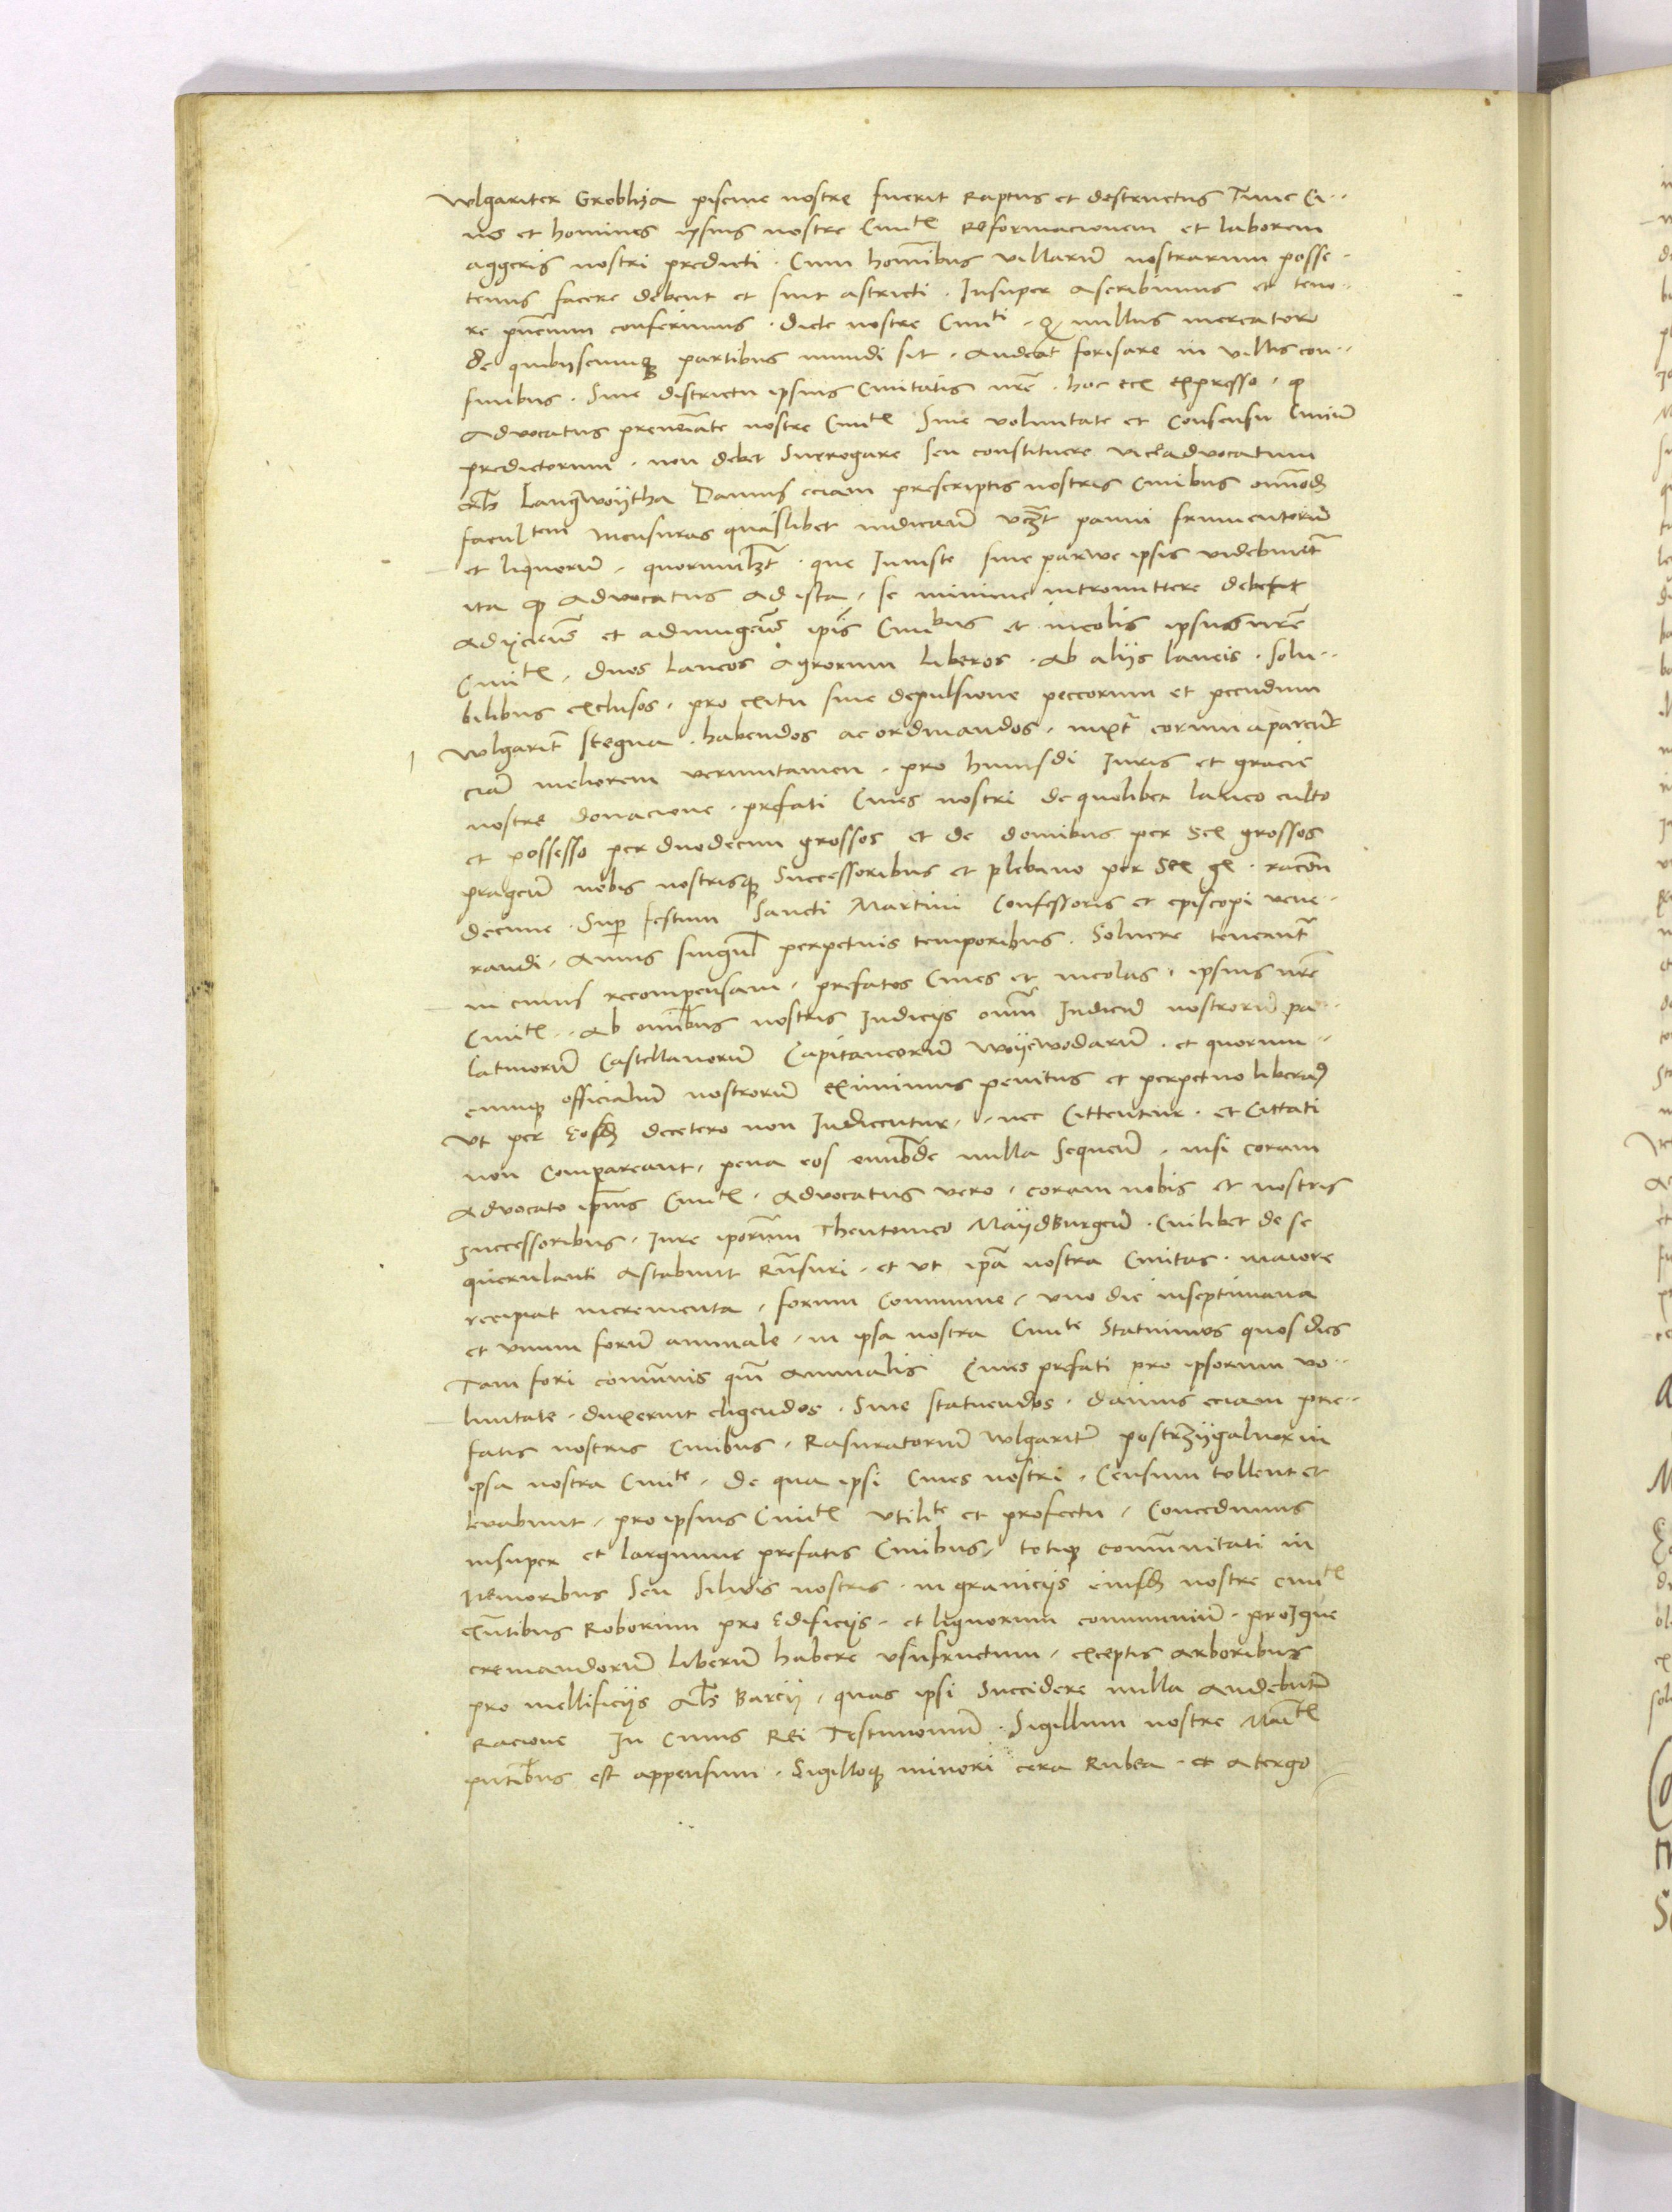 wlgariter Grobliza piscine nostre fuerit Raptus et destructus Tunc Ci-
ues et homines ipsius nostre Ciuit͞s Reformacionem et laborem
aggeris nostri predicti . Cum hom̅ibus villaru̅ nostrarum posse-
tenus facere debent et sint astricti . Insuper ascribimus et teno-
re pn̅cium conferimus . dicte nostre Ciuiti . q̱ nullus mercator
de quibuscumq̱ partibus mundi sit . audeat forisare in villis con-
finibus . Siue districtu ipsius Ciuitatis nr̅e . hoc ecia̅ expresso . q̱
Advocatus preno̅iate nostre Ciuit͞s Sine voluntate et consensu Ciuiu̅
predictorum . non debet Surrogare seu constituere viceadvocatum
al̅s Lantwoytha Damus eciam prescriptis nostris Ciuibus omnod̅
facultem mensuras quaslibet iudicandi vcz̅t panni frumentoru̅
et liquoru̅ . quorumlz̅t . que Iniuste siue parwe ipsis videbunt̅
ita q̱ Advocatus ad ista . se minime intromittere debebit
Adijcien̅s et adiungen̅s ip̅is Ciuibus et incolis ipsius nr̅e
Ciuit͞s . duos Laneos Agrorum Liberos . Ab alijs laneis . Solu-
bilibus exclusos . pro exitu siue depulsione peccorum et pecudum
wlgarit̅ stegna . habendos ac ordinandos . iuxt̅ eorum aparen̅-
cia̅ meliorem verumtamen . pro huiusdi Iuris et gracie
nostre donacione . prefati Ciues nostri de quolibet laneo culto
et possesso per duodecim grossos et de domibus per Sex grossos
pragen̅ nobis nostrisq̱ Successoribus et plebano per Sex gͤ . racon̅
decime . Sup̅ festum Sancti Martini Confessoris et episcopi vene-
randi . Annis singul̅ perpetuis temporibus . Soluere teneant̅
in cuius recompensam . prefatos Ciues et incolas . ipsius nr̅e
Ciuit͞s . Ab omibus nostris Iudicijs omn̅ Iudicu̅ nostroru̅ pa-
latinoru̅ Castellanoru̅ Capitaneoru̅ woijewodaru̅ . et quorum-
cumq̱ officialiu̅ nostroru̅ eximimus penitus et perpetuo liberad̅
Vt per Eosd̅ decetero non Iudicentur . nec Cittentur . et Cittati
non compareant . pena eos omimode nulla Sequen̅ . nisi coram
Advocato ip̅ius Ciuit͞s . Advocatus vero . coram nobis et nostris
successoribus . Iure ipor̅um Theutonico Maijdburgen̅ . Cuilibet de se
querulanti Astabunt Rn̅suri . et vt ip̅a nostra Ciuitas . maiore
recipiat incrementa . forum Commune . vno die inseptimana
et vnum foru̅ annuale . in ipsa nostra Ciuite Statuimus quos dies
Tam fori comu̅nis qu̅ annualis Ciues prefati pro ipsorum vo-
luntate . duxerint eligendos . Siue statuendos . damus eciam pre-
fatis nostris Ciuibus . Rasuratoriu̅ wlgarite̅ postrzijgalnor in
ipsa nostra Ciuite . de qua ipsi Ciues nostri . Censum tollent et
levabunt . pro ipsius Ciuit͞s vtilite et profectu . Concedimus
insuper et largimur prefatis Ciuibus . totiq̱ comu̅nitati in
Nemoribus Seu Siluis nostris . in granicijs eiusd̅ nostre Ciuit͞s
exn̅tibus Roborum pro Edificijs . et lignorum communiu̅ . pro Igne
cremandoru̅ Liberu̅ habere vsufructum . exceptis arboribus
pro mellificijs Al̅s Barcij . quas ipsi Succidere nulla audebunt̅
Racione In Cuius Rei Testimoniu̅ . Sigillum nostre Mait͞s
pn̅tibus est appensum . Sigilloq̱ minori cera Rubea . et atergo